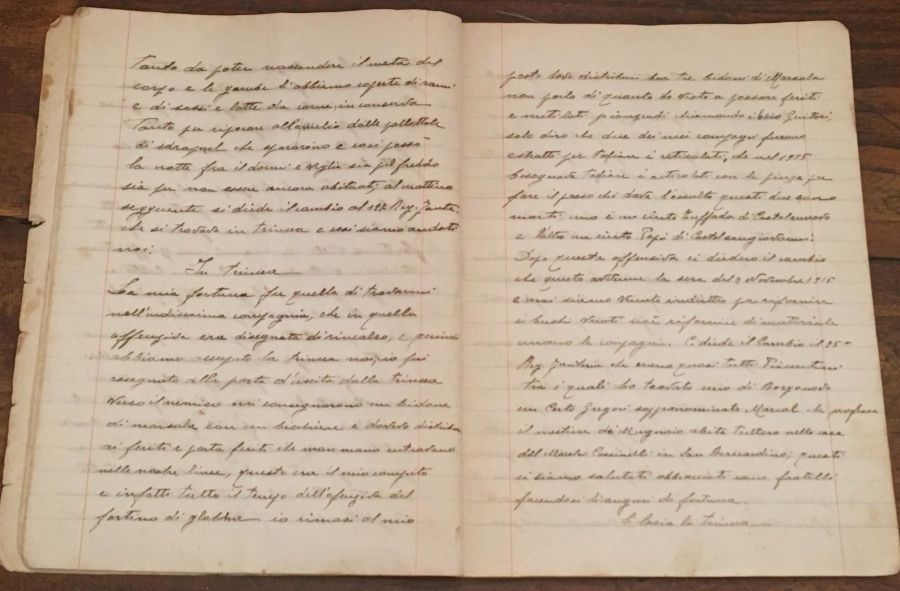 tanto da poter nascondere il resto del
corpo e le gambe l'abbiamo coperte di rami
e di sassi e latte da carne in conserva
tanto per riparare alla meglio dalle pallottole
di sdrapnel che sparavano e così passò
la notte fra il dormi e veglia sia pel freddo
sia per non essere ancora abituati, al mattino
seguente si diede il cambio al 127 Reg. Fante.
che si trovava in trincea e essi siamo andati
noi:
In trincea
La mia fortuna fu quella di trovarmi
nell'undicesima compagnia, che in quella
offensiva era disegnata di rincalzo, e quindi
abbiamo occupato la trincea noi, io fui
rasegnato alla porta d'uscita dalla trincea
verso il nemico mi consegnarono un bidone
di marsala con un bicchiere e dovevo distribu
ai feriti e porta feriti che man mano entravano
nelle nostre linee, questo era il mio compito
e infatti tutto il tempo dell'ofensiva del
fortino di globna io rimasi al mio
posto dove distribuii ben tre bidoni di Marsala
non parlo di quanto ho visto a passare feriti
e mutilati piangendi chiamando i loro Genitori,
solo diro che due dei miei compagni furono
estratti per tagliare i reticolati, che nel 1915
bisognava tagliare i reticolati con le pinze per
fare il passo chi dava l'assalto questi due sono
morti, uno è un certo Zuffada di Castelnuovo
e l'altro un certo Papi di Castelsangiovanni:
Dopo questa offensiva ci diedero il cambio
che questo avvenne la sera del 2 Novembre 1915
e noi siamo venuti indietro per rifornire
i buchi vuoti cioè rifornire di materiale
umano le compagnie. Ci diede il Cambio il 25°
Reg. Fanteria che erano quasi tutti Piacentini
tra i quali ho trovato uno di Borgonovo
un Certo Gregori soppranominato Marcal che professa
il mestiere di Mugnaio abita tuttora nella casa
del Maestro Cassinelli in San Bernardino; questi
ci siamo salutati abbracciati come fratelli
facendoci gli auguri di fortuna
Si lascia la trincea